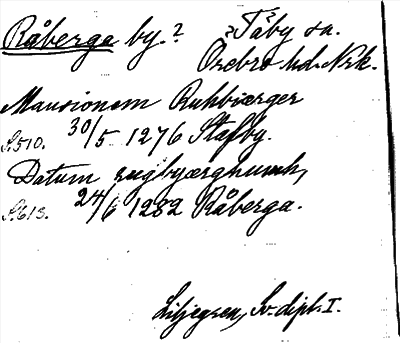 Råberga by.? ?Täby sn.
Örebro hd. Nrk.
Mansionem Ruhbiærger
S.510. 30/5 1276 Stafby.
Datum rugbyærghumh,
S.613. 24/6 1282 Råberga.
Liljegren, Sv. dipl. I.